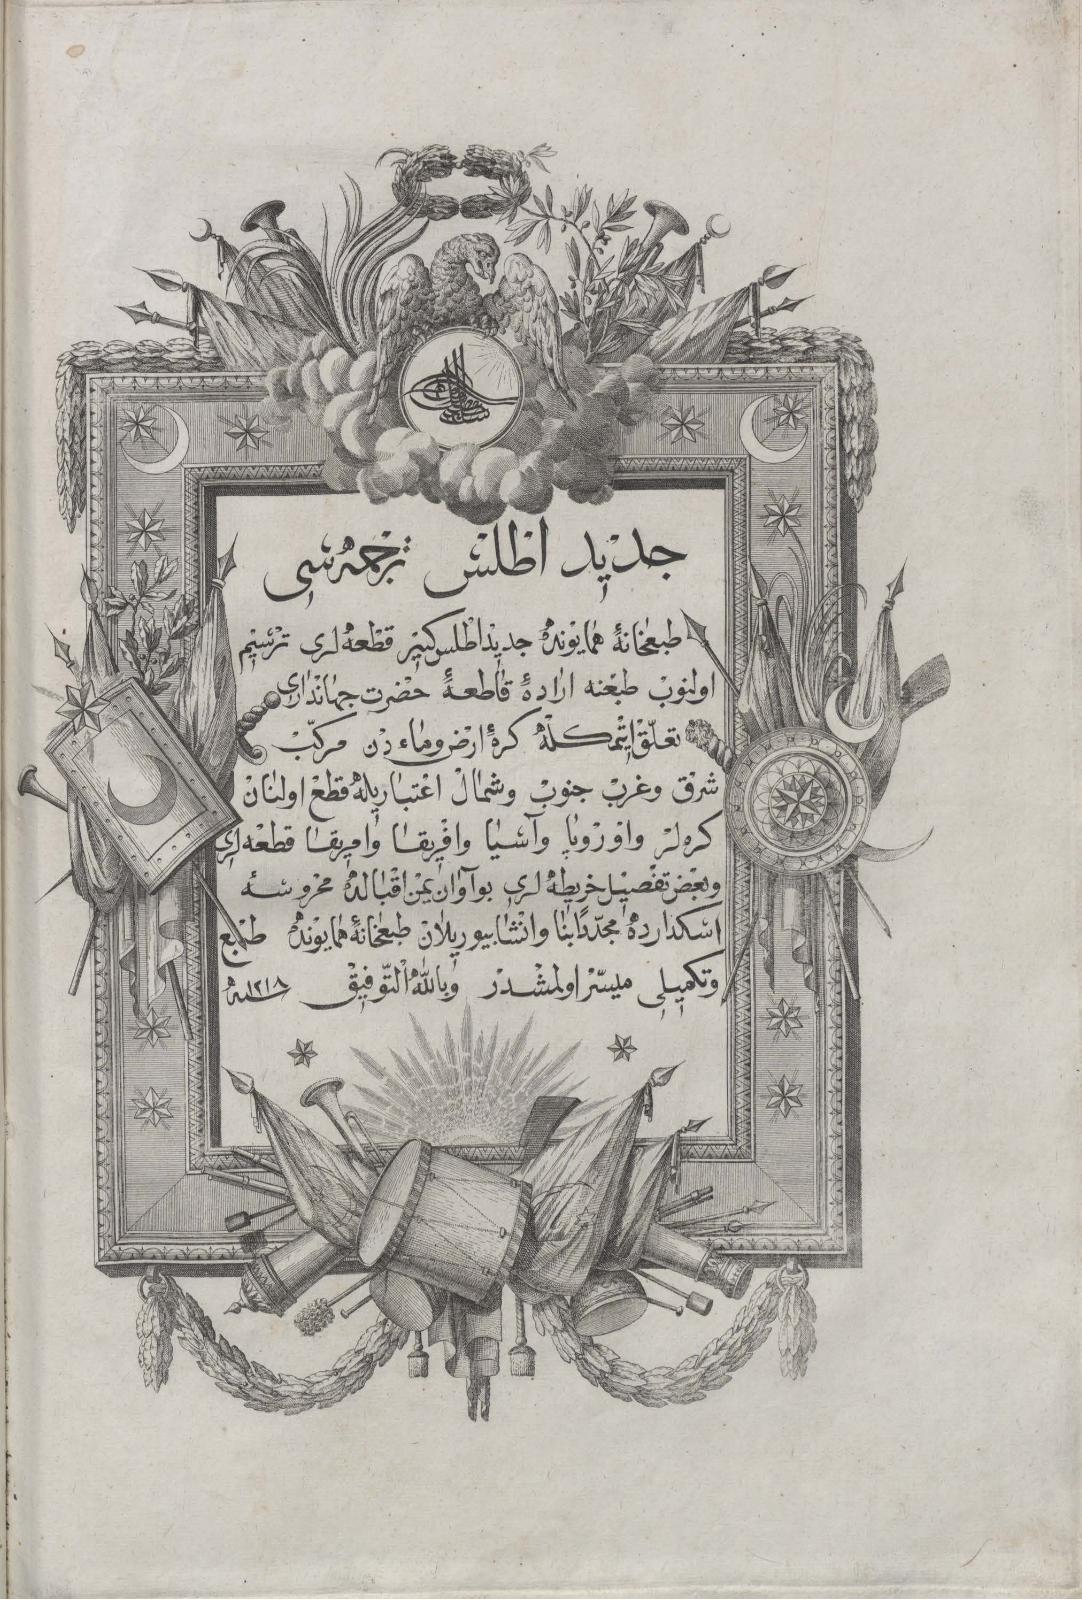 جديد اطلس ترجمه‌سی
طبعخانۀ همايونده جديد اطلس كبير قطعه‌لری ترسيم
اولنوب طبعنه ارادۀ قاطعۀ حضرت جهانداری
تعلّق ايتمكله كرۀ ارض وماء دن مركّب
شرق وغرب جنوب وشمال اعتباريله قطع اولنان
كره‌لر واوروپا وآسيا وافريقا وامريقا قطعه‌لری
وبعض تفصيل خريطه‌لری بو آوان يمن اقبالده محروسۀ
اسكدارده مجدّدًا بنا وانشا بيوريلان طبعخانۀ همايونده طبع
وتكميلی ميسّر اولمشدر وبالله التّوفيق سنه ١٢١٨